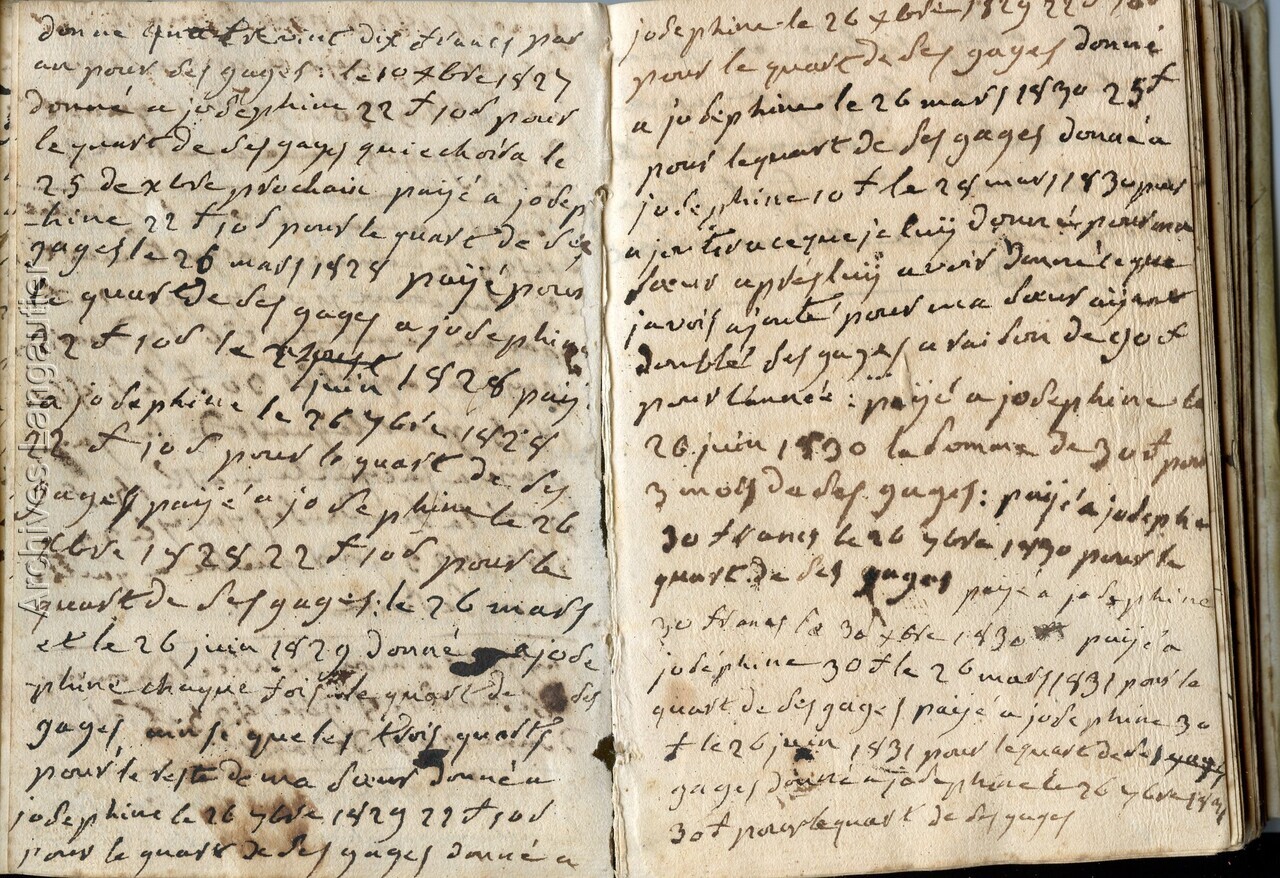 donné quatrevint dix francs par
an pour ses gages : le 10 xbre 1827
donné a josephine 22 ₶ 10 s pour
le quart de ses gages qui echoira le
25 de xbre prochain paijé a josep
-hine 22 ₶ 10 s pour le quart de ses
gages le 26 mars 1828 paijé pour
le quart de ses gages a josephine
22 ₶ 10 s le
juin 1828 paijé
a josephine le 26 7bre 1828
22 ₶ 10 s pour le quart de ses
gages paijé a josephine le 26
xbre 1828 22 ₶ 10 s pour le
quart de ses gages : le 26 mars
et le 26 juin 1829 donné a jose
-phine chaque fois le quart de ses
gages, ainsi que les trois quarts
pour le reste de ma sœur donné a
josephine le 26 7bre 1829 22 ₶ 10 s
pour le quart de ses gages donné a
josephine le 26 xbre 1829 22 ₶ 10 s
pour le quart de ses gages donné
a josephine le 26 mars 1830 25 ₶
pour le quart de ses gages donné a
josephine 10 ₶ le 28 mars 1830 pour
a ce que je luij donné pour ma
sœur après luij avoir donné le que
javois ajouté pour ma sœur aijant
doublé ses gages a raison de 90 ₶
pour l'année : paijé a josephine le
26 juin 1830 la somme de 30 ₶ pour
3 mois de ses gages : paijé a josephi
30 francs le 26 7bre 1830 pour le
quart de ses gages paijé a josephine
30 francs le 30 xbre 1830 paijé a
joséphine 30 ₶ le 26 mars 1831 pour le
quart de ses gages paijé a josephine 30
₶ le 26 juin 1831 pour le quart de ses gages
gages donné a josephine le 26 7bre 1831
30 ₶ pour le quart de ses gages
Archives Langautier